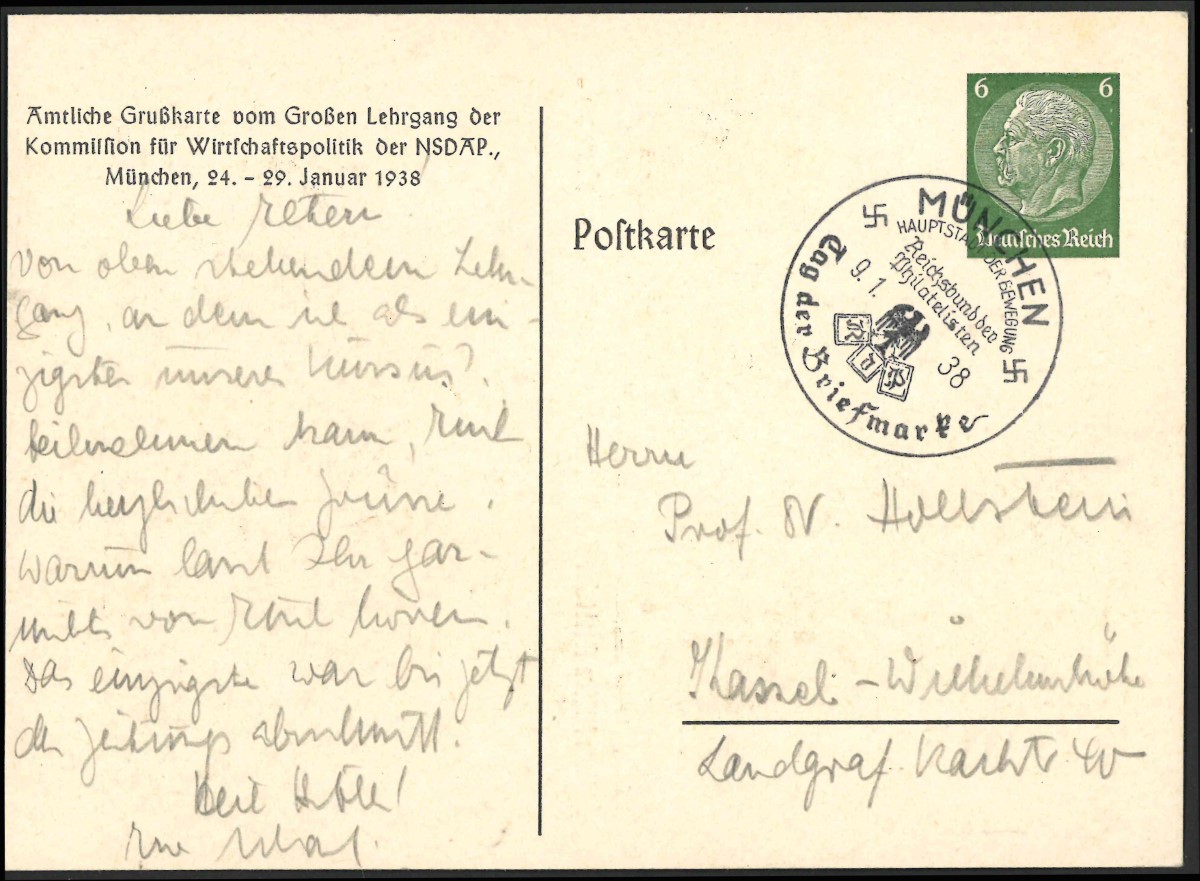 Amtliche Grußkarte vom Großen Lehrgang der
Kommission für Wirtschaftspolitik der NSDAP.,
München, 24. - 29. Januar 1938
Liebe Eltern
von oben stehendem Lehr-
gang, an dem ich als ein-
zigster unseres Kursus
teilnehmen kann, Euch
die herzlichsten Grüsse.
Warum lasst Ihr gar-
nichts von Euch hören.
Das einzigste war bis jetzt
der Zeitungsabschnitt.
Heil Hitler!
Euer
Postkarte
6 6
Deutsches Reich
MÜNCHEN
HAUPTSTADT DER BEWEGUNG
Reichsbund der
Philatelisten
9.1.
38
R d P
Tag der Briefmarke
Herrn
Prof. Dr. Hollstein
Kassel-Wilhelmshöhe
Landgraf Karlstr